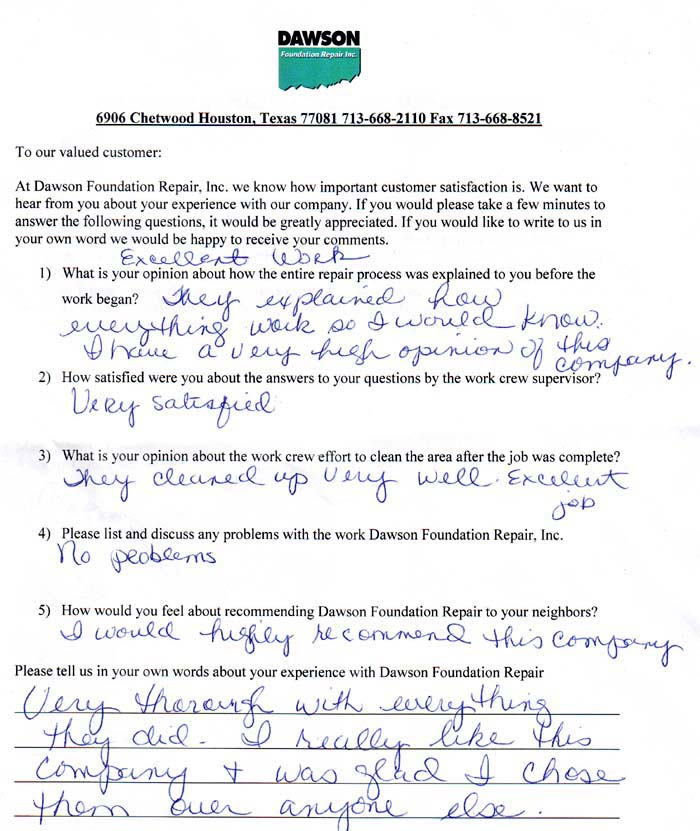 DAWSON
Foundation Repair Inc.
6906 Chetwood Houston, Texas 77081 713-668-2110 Fax 713-668-8521
To our valued customer:
At Dawson Foundation Repair, Inc. we know how important customer satisfaction is. We want to
hear from you about your experience with our company. If you would please take a few minutes to
answer the following questions, it would be greatly appreciated. If you would like to write to us in
your own word we would be happy to receive your comments.
Excellent Work
1) What is your opinion about how the entire repair process was explained to you before the
work began? They explained how
everything work so I would know.
I have a very high opinion of this
company.
2) How satisfied were you about the answers to your questions by the work crew supervisor?
Very satisfied
3) What is your opinion about the work crew effort to clean the area after the job was complete?
They cleaned up very well. Excellent
job
4) Please list and discuss any problems with the work Dawson Foundation Repair, Inc.
No problems
5) How would you feel about recommending Dawson Foundation Repair to your neighbors?
I would highly recommend this company
Please tell us in your own words about your experience with Dawson Foundation Repair
Very thorough with everything
they did. I really like this
company + was glad I chose
them over anyone else.